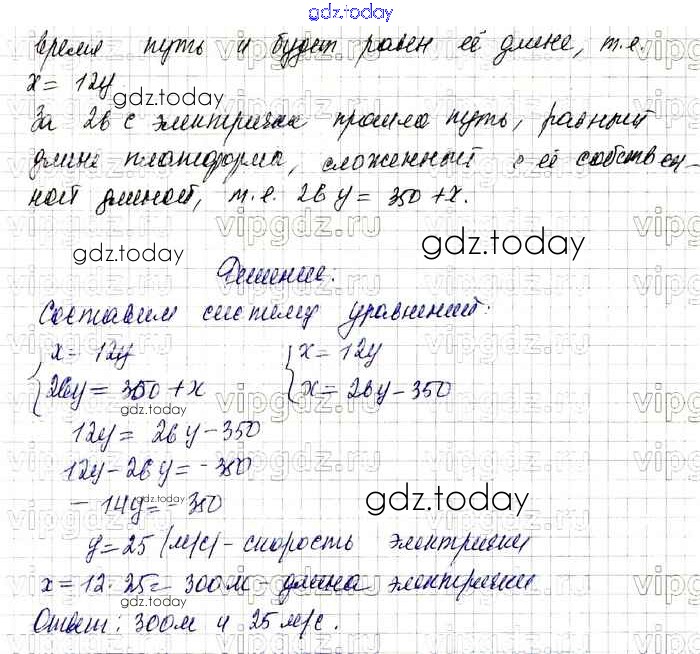 gdz.today
время путь и будет равен её длине, т.е.
x = 12y
gdz.today
За 26 с электричка прошла путь, равный
длине платформы, сложенный с её собствен-
ной длиной, т.е. 26y = 350 + x.
gdz.today gdz.today
Решение:
Составим систему уравнений:
{ x = 12y { x = 12y
26y = 350 + x x = 26y - 350
gdz.today
12y = 26y - 350
12y - 26y = -350
- 14y = - 350
gdz.today gdz.today
y = 25 (м/с) - скорость электрички
x = 12 · 25 = 300м - длина электрички
gdz.today
Ответ: 300м и 25 м/с.
vipgdz.ru